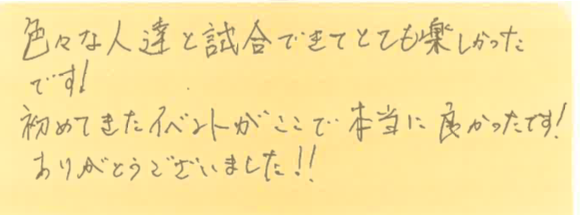 色々な人達と試合できてとても楽しかった
です!
初めてきたイベントがここで本当に良かったです!
ありがとうございました!!